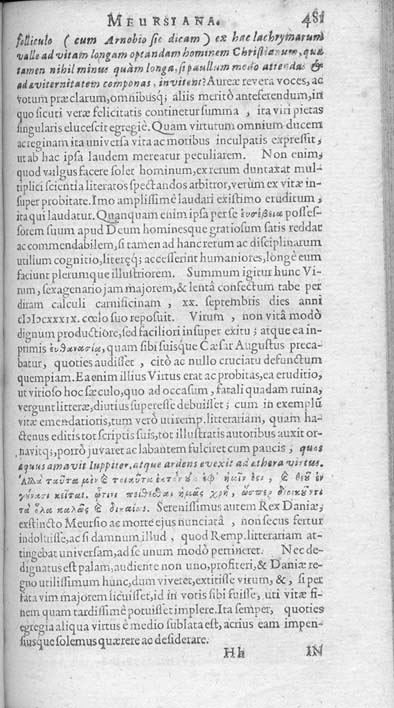 MEURSIANA. 481
folliculo (cum Arnobio sic dicam) ex hac lachrymarum
valle ad vitam longam optandam hominem Christianum, quæ
tamen nihil minus quàm longa, si paullum modo attendas &
ad æviternitatem componas, invitent? Aureæ revera voces, ac
votum præclarum, omnibusq; aliis meritò anteferendum, in
quo sicuti veræ felicitatis continetur summa, ita viri pietas
singularis elucescit egregiè. Quam virtutum omnium ducem
ac reginam ita universa vita ac moribus inculpatis expressit,
ut ab hac ipsa laudem mereatur peculiarem. Non enim,
quod vulgus facere solet hominum, ex rerum duntaxat mul-
tiplici scientia literatos spectandos arbitror, verùm ex vitæ in-
super probitate. Imo amplissimè laudari existimo eruditum,
ita qui laudatur. Quanquam enim ipsa per se ἐυσέβεια posses-
sorem suum apud Deum hominesque gratiosum satis reddat
ac commendabilem, si tamen ad hanc rerum ac disciplinarum
utilium cognitio, literęq; accesserint humaniores, longè eum
faciunt plerumque illustriorem. Summum igitur hunc Vi-
rum, sexagenario jam majorem, & lentâ confectum tabe per
diram calculi carnificinam, xx. septembris dies anni
cIɔIɔcxxxix. cœlo suo reposuit. Virum, non vitâ modò
dignum productiore, sed faciliori insuper exitu; atque ea in-
primis ἐυθανασίᾳ, quam sibi suisque Cæsar Augustus preca-
batur, quoties audisset, citò ac nullo cruciatu defunctum
quempiam. Ea enim illius Virtus erat ac probitas, ea eruditio,
ut vitioso hoc sæculo, quo ad occasum, fatali quadam ruina,
vergunt litteræ, diutius superesse debuisset; cum in exemplũ
vitæ emendatioris, tum verò uti remp. litterariam, quam ha-
ctenus editis tot scriptis suis, tot illustratis autoribus auxit or-
navitq;, porrò juvaret ac labantem fulciret cum paucis, quos
æquus amavit Iuppiter, atque ardens evexit ad æthera virtus.
Ἀλλὰ ταῦτα μὲν & τοιαῦτα
τὰ ὅλα καλῶς & δικαίως. Serenissimus autem Rex Daniæ,
exstincto Meursio ac morte ejus nunciatâ, non secus fertur
indoluisse, ac si damnum illud, quod Remp. litterariam at-
tingebat universam, ad se unum modò pertineret. Nec de-
dignatus est palam, audiente non uno, profiteri, & Daniæ re-
gno utilissimum hunc, dum viveret, extitisse virum, &, si per
fata vim majorem licuisset, id in votis sibi fuisse, uti vitæ fi-
nem quam tardissimè potuisset implere. Ita semper, quoties
egregia aliqua virtus è medio sublata est, acrius eam impen-
siusque solemus quærere ac desiderare.
Hh IN